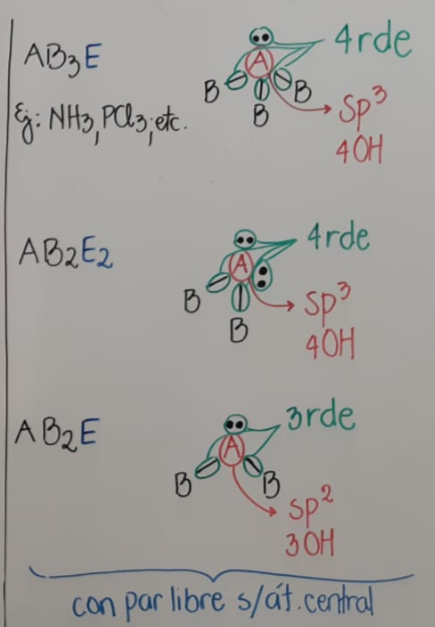 AB₃E
Ej: NH₃, PCl₃, etc.
A
B
B
B
4rde
sp³
4OH
AB₂E₂
A
B
B
4rde
sp³
4OH
AB₂E
A
B
B
3rde
sp²
3OH
con par libre s/át. central